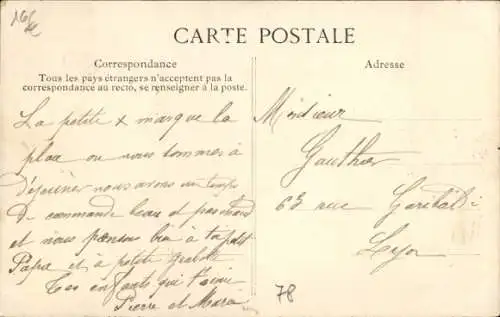 CARTE POSTALE
Correspondance
Tous les pays étrangers n'acceptent pas la
correspondance au recto, se renseigner à la poste.
La petite x marque la
plaa ou nous sommes à
déjeuner nous avons un temps
de commande beau et pas chaud
et nous pensons bien à ta petit
Papa et à petite
Tes enfants qui t'aime
Pierre et Mara
Adresse
Monsieur
Gauthier
63 rue Garibaldi
Lyon
78